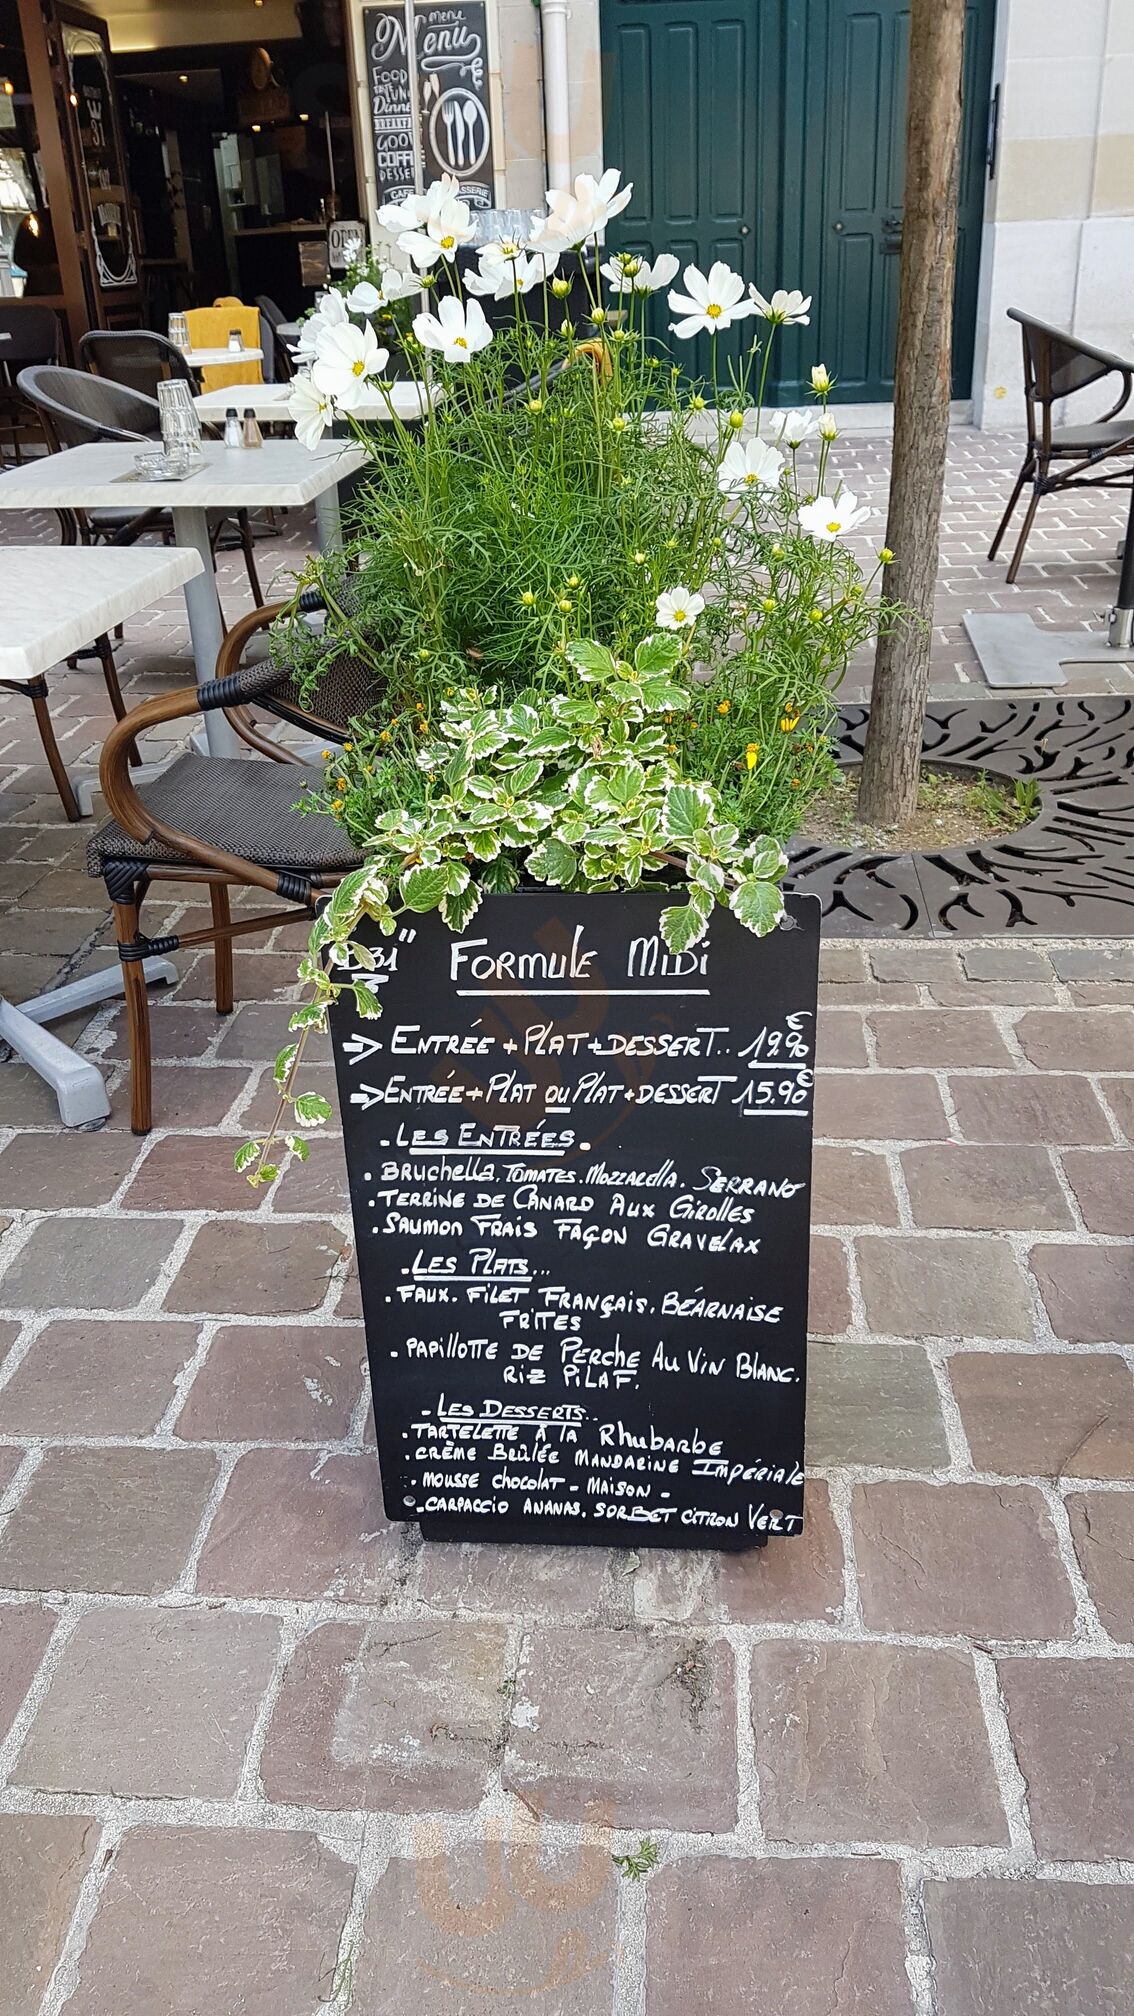 menu
Menu
FOOD
Dinne
BREAKFA
GOO
COFF
DESSE
CAFE
SSERIE
OPEN
31
B31"
FORMULE MIDI
ENTRÉE + PLAT + DESSERT.. 19.90€
ENTRÉE + PLAT OU PLAT + DESSERT 15.90€
. LES ENTRÉES .
. BRUCHELLA. TOMATES. MOZZARELLA. SERRANO
. TERRINE DE CANARD AUX GIROLLES
. SAUMON FRAIS FAÇON GRAVELAX
. LES PLATS...
. FAUX. FILET FRANÇAIS. BÉARNAISE
FRITES
. PAPILLOTTE DE PERCHE AU VIN BLANC.
RIZ PILAF.
- LES DESSERTS..
. TARTELETTE À LA RHUBARBE
. CRÈME BRÛLÉE MANDARINE IMPÉRIALE
. MOUSSE CHOCOLAT - MAISON -
. CARPACCIO ANANAS. SORBET CITRON VERT